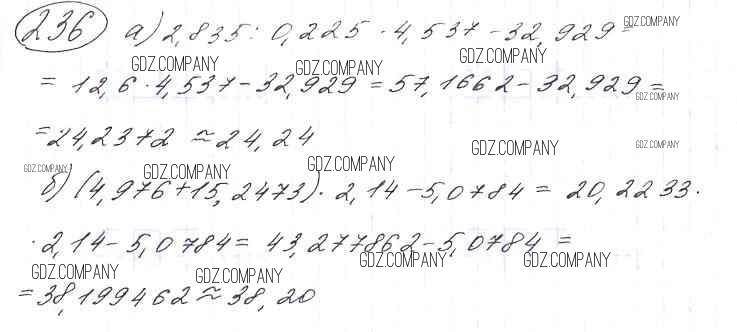 236 а) 2,835 : 0,225 · 4,537 - 32,929 =
GDZ.COMPANY GDZ.COMPANY GDZ.COMPANY GDZ.COMPANY
= 12,6 · 4,537 - 32,929 = 57,1662 - 32,929 =
GDZ.COMPANY
= 24,2372 ≈ 24,24
GDZ.COMPANY GDZ.COMPANY GDZ.COMPANY GDZ.COMPANY GDZ.COMPANY
б) (4,976 + 15,2473) · 2,14 - 5,0784 = 20,2233 ·
GDZ.COMPANY
· 2,14 - 5,0784 = 43,277862 - 5,0784 =
GDZ.COMPANY GDZ.COMPANY GDZ.COMPANY GDZ.COMPANY
= 38,199462 ≈ 38,20